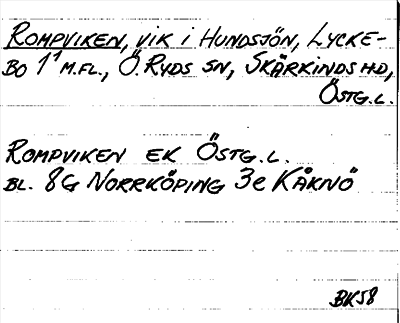 ROMPVIKEN, VIK I HUNDSJÖN, LYCKE-
BO 1¹ M.FL., Ö. RYDS SN, SKÄRKINDS HD,
ÖSTG.L.
ROMPVIKEN EK ÖSTG.L.
BL. 8G NORRKÖPING 3e KÅKNÖ
BK58